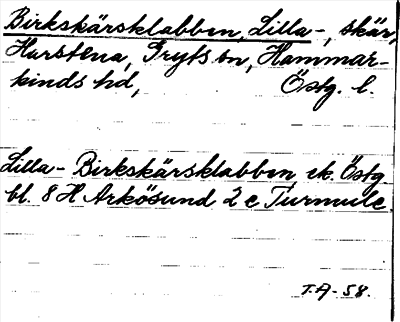 Birkskärsklabben, Lilla-, skär,
Harstena, Gryts sn, Hammar-
kinds hd, Östg. l.
Lilla- Birkskärsklabben ek. Östg.
bl. 8 H Arkösund 2 e Turmule.
T.A-58.